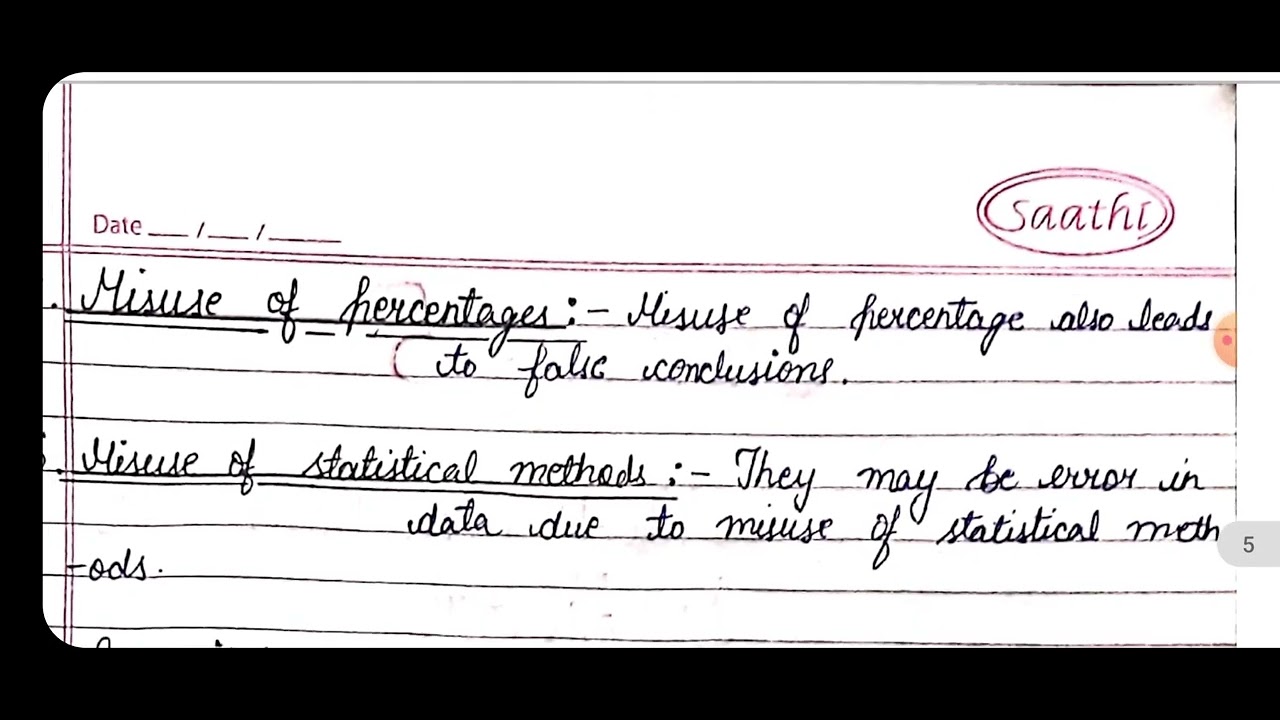 Saathi
Date __/__/____
. Misuse of percentages :- Misuse of percentage also leads
to false conclusions.
. Misuse of statistical methods :- They may be error in
data due to misuse of statistical meth
-ods.
5